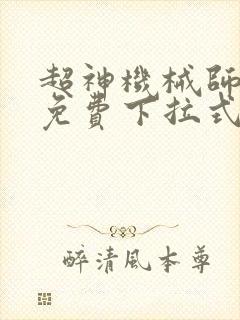 超神機械師
免費下拉式
醉清風本尊